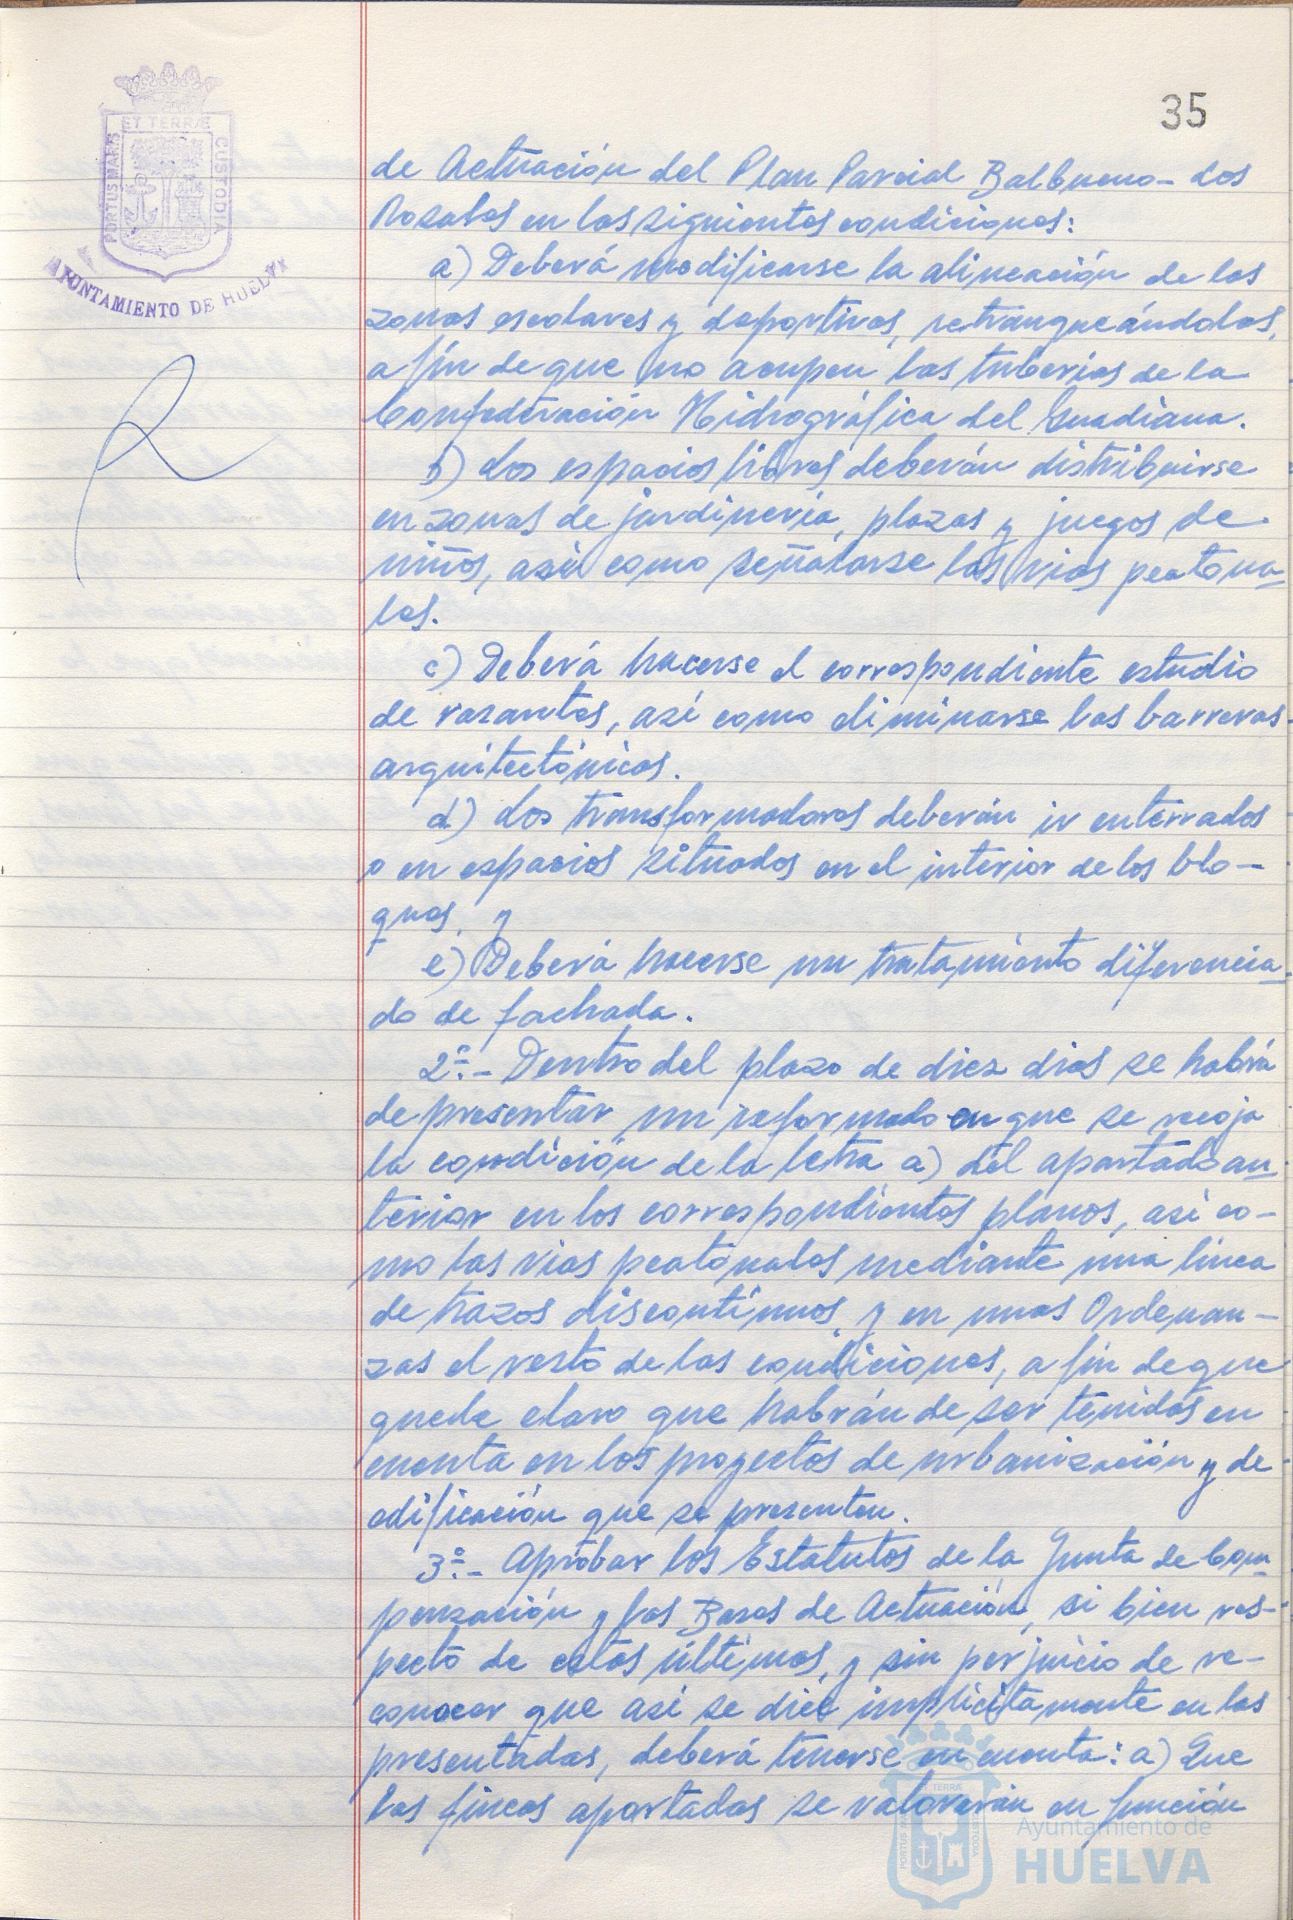 ET TERRÆ
PORTUS MARIS
CUSTODIA
AYUNTAMIENTO DE HUELVA
35
de Actuación del Plan Parcial Balbueno-Los
Rosales en las siguientes condiciones:
a) Deberá modificarse la alineación de las
zonas escolares y deportivas, retranqueándolas,
a fin de que no acupen las tuberías de la
Confederación Hidrográfica del Guadiana.
b) Los espacios libres deberán distribuirse
en zonas de jardinería, plazas y juegos de
niños, así como señalarse las vías peatona-
les.
c) Deberá hacerse el correspondiente estudio
de rasantes, así como eliminarse las barreras
arquitectónicas.
d) Los transformadores deberán ir enterrados
o en espacios situados en el interior de los blo-
ques, y
e) Deberá hacerse un tratamiento diferencia-
do de fachada.
2º.- Dentro del plazo de diez dias se habrá
de presentar un reformado en que se recoja
la condición de la letra a) del apartado an-
terior en los correspondientes planos, así co-
mo las vías peatonales mediante una línea
de trazos discontinuos, y en unas Ordenan-
zas el resto de las condiciones, a fin de que
quede claro que habrán de ser tenidas en
cuenta en los proyectos de urbanización y de
edificación que se presenten.
3º.- Aprobar los Estatutos de la Junta de Com-
pensación y las Bases de Actuación, si bien res-
pecto de estas últimas, y sin perjuicio de re-
conocer que así se dice implícitamente en las
presentadas, deberá tenerse en cuenta: a) Que
las fincas aportadas se valorarán en función
ET TERRÆ
PORTUS MARIS
CUSTODIA
Ayuntamiento de
HUELVA